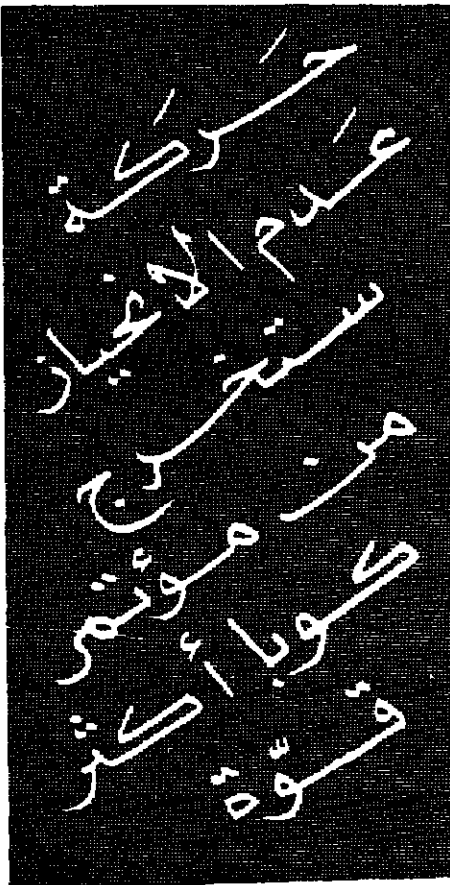 حَركَة
عَدم الانحياز
ستخرج
من مؤتمر
كوبا أكثر
قوّة